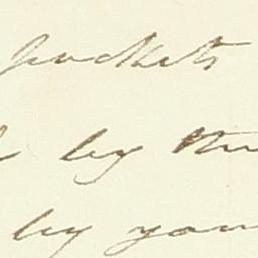 pockets
by the
by your